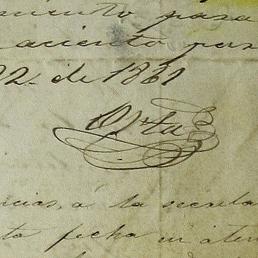 miento para
aciento por
22 de 1861
Orta
cias, á la secreta
ta fecha en aten